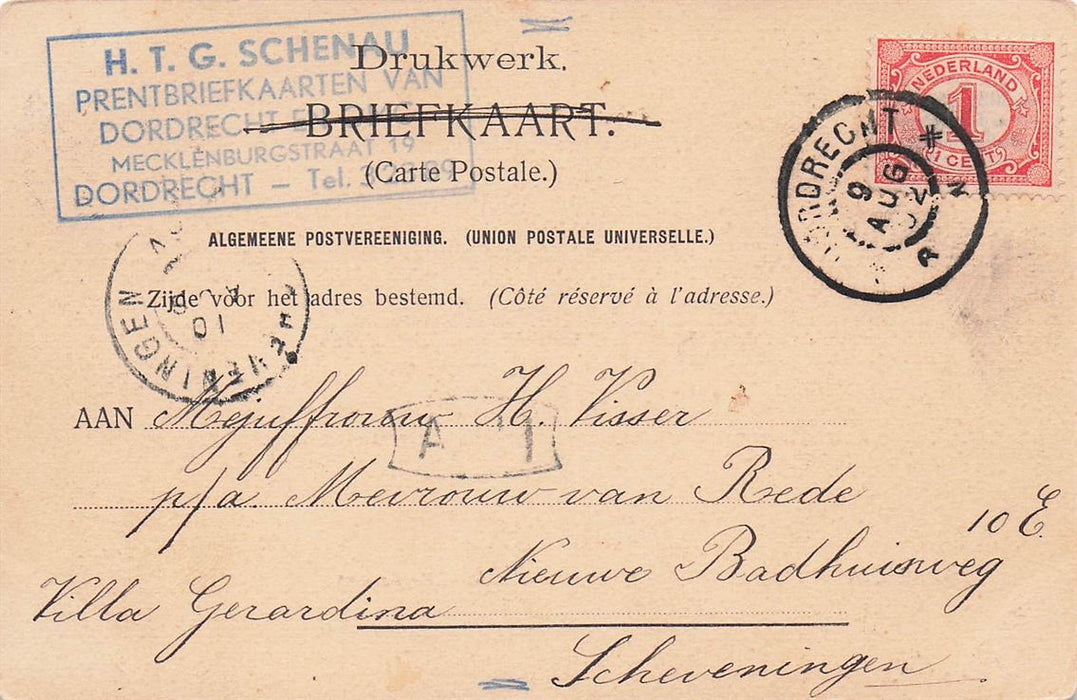 H. T. G. SCHENAU
PRENTBRIEFKAARTEN VAN
DORDRECHT
MECKLENBURGSTRAAT 19
DORDRECHT — Tel.
Drukwerk.
BRIEFKAART.
(Carte Postale.)
ALGEMEENE POSTVEREENIGING. (UNION POSTALE UNIVERSELLE.)
Zijde voor het adres bestemd. (Côté réservé à l'adresse.)
NEDERLAND
1
1 CENT
DORDRECHT
9
AUG
02
AAN Mejuffrouw H. Visser
A 1
p/a Mevrouw van Rede
Nieuwe Badhuisweg 10 E.
Villa Gerardina
Scheveningen